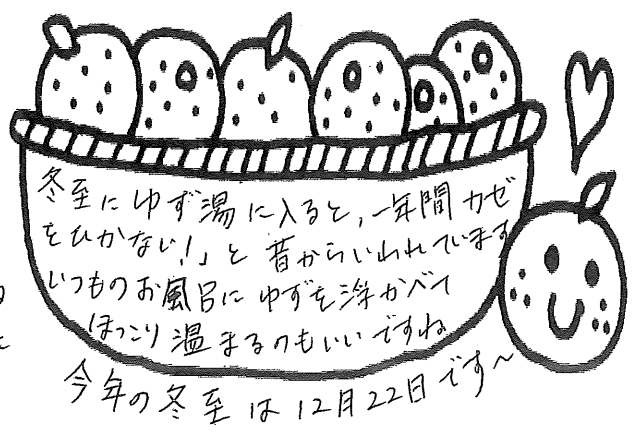 冬至にゆず湯に入ると、一年間カゼ
をひかない!」と昔からいわれています
いつものお風呂にゆずを浮かべて
ほっこり温まるのもいいですね
今年の冬至は12月22日です〜